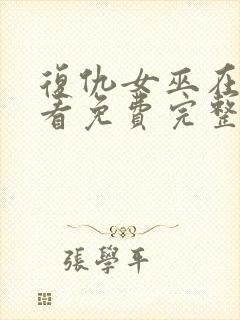 復仇女巫在
看免費完整
張學平